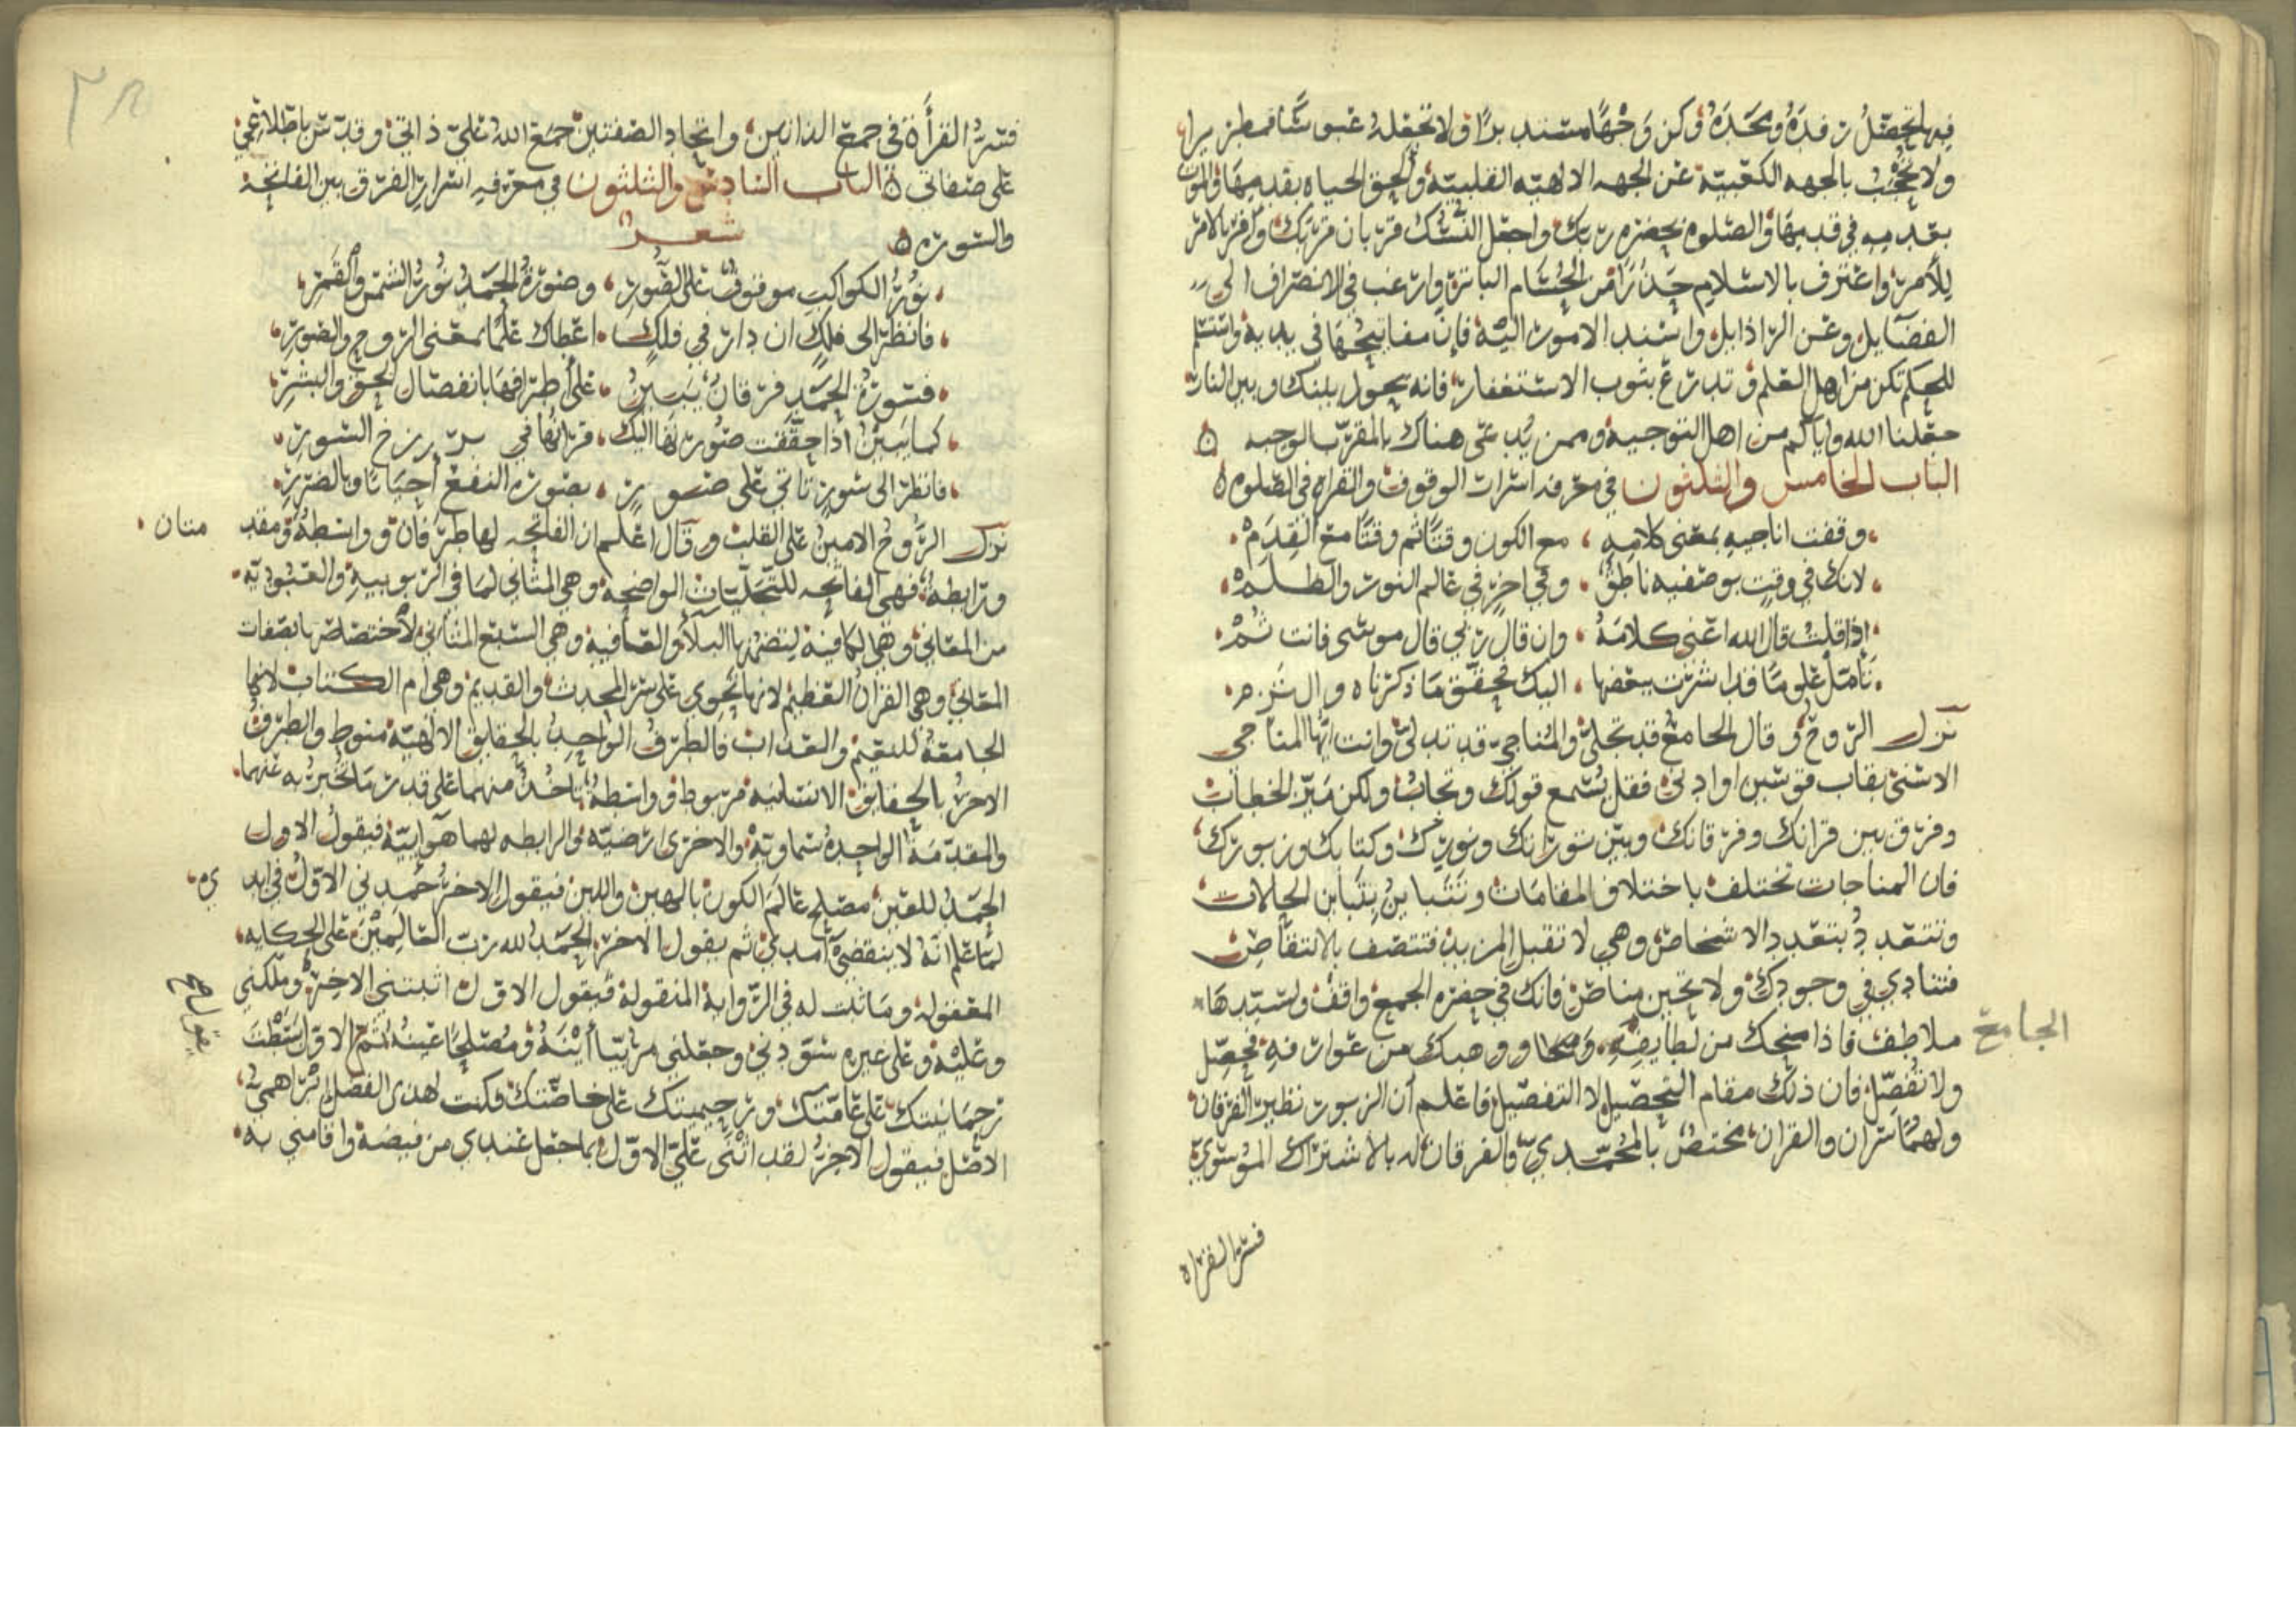 ولا تحجب بالجهه الكعبية عن الجهه الالهيه القلبية والحق الحياه بقدميها والموت
بقدميه في قدميها والصلوه بحضره ربك واجعل النسك قربان قربك وكفر بالامر
للأمر واعترف بالاسلام حذرا من الحسام الباتر وارغب في الانصراف الى
الفضايل وعن الرذايل واسند الامور اليه فإن مفاتيحها في يديه واستسلم
للحكم تكن من اهل العلم وتدرع بثوب الاستغفار فانه يحول بينك وبين النار
جعلنا الله واياكم من اهل التوجيه وممن يدعى هناك بالمقرب الوجيه ه
الباب الخامس والثلثون في معرفه اسرار الوقوف والقراه في الصلوه ه
وقفت اناجيه بمعنى كلامه ، مع الكون وقتا ثم وقتا مع القدم
لانك في وقت بوصفيه ناطق ، وفي اخر في عالم النور والظلم
اذا قلت قال الله اعني كلامه ، وان قال ربي قال موسى فانت ثم
تأمل علوما قد اشرت ببعضها ، اليك تحقق ما ذكرناه والتزم
نزل الروح وقال الجامع قد تجلى والمناجي قد تدلى وانت ايها المناجي
الاسنى بقاب قوسين او ادنى فقل يسمع قولك وتجاب ولكن ميز الخطاب
وفرق بين قرانك وفرقانك وبين توراتك ونورك وكتابك وزبورك
فان المناجات تختلف باختلاف المقامات وتتباين بتباين الحالات
وتتعدد بتعدد الاشخاص وهي لا تقبل المزيد فتتصف بالانتقاص
فتنادي في وجودك ولا تحين مناص فانك في حضره الجمع واقف ولسيدها
الجامع
ملاطف فاذا منحك من لطايفه ووهبك من عوارفه فحصل
ولا تفصل فان ذلك مقام التحصيل لا التفصيل فاعلم أن الزبور نظير الفرقان
ولهما سران والقران مختص بالمحمدي والفرقان له بالاشتراك الموسوي
فسر القراه
فسر القرأة في جمع الذاتين واتحاد الصفتين جمع الله علي ذاتي وقدس باطلاعي
على صفاتي ه الباب السادس والثلثون في معرفه اسرار الفرق بين الفاتحة
والسوره ه شعر
نور الكواكب موقوف على الصور ، وصورة الحمد نور الشمس والقمر
فانظر الى ملك ان دار في فلك ، اعطاك علما بمعنى الروح والصور
فسورة الحمد فرقان يبين ، على أطرافها بانفصال الحق والبشر
كما يبين اذا حققت صورتها اليك ، قرانها في برزخ السور
فانظر الى سور تاتي على صور ، بصوره النفع أحيانا وبالضرر
نزل الروح الامين على القلب وقال اعلم ان الفاتحه لها طرفان وواسطة ومقد
متان
ورابطه فهي الفاتحه للتجليات الواضحه وهي المثاني لما في الربوبيه والعبوديه
من المعاني وهي الكافية لتضمنها البلاء والعافية وهي السبع المثاني لاختصاصها بصفات
المعاني وهي القرآن العظيم لانها تحوي على سر المحدث والقديم وهي ام الكتاب لانها
الجامعة للنعيم والعذاب فالطرف الواحد بالحقايق الالهية منوط والطرف
الاخر بالحقايق الانسانيه مربوط وواسطه ياخذ منهما على قدر ما تخبر به عنهما
والمقدمة الواحده سماوية والاخرى ارضيه والرابطه لهما هوائية فيقول الاول
الحمد للعين مصلح عالم الكون بالهين واللين فيقول الاخر حمدني الاول في ابد
ي
لما علم انه لا ينقضي أمدي ثم يقول الاخر الحمد لله رب العالمين على الحكايه
المعقوله وما ثبت له في الرواية المنقولة فيقول الاول اثبتني الاخر وملكني
وعليه وعلى غيره سودني وجعلني مربيا أينه ومصلحا عينه ثم الاول بسطت
رحمانيتك على عامتك ورحيميتك على خاصتك فكنت لهذي الفضل
الافضل فيقول الاخر لقد اثنى علي الاول بما جعل عندي من فيضه واقامني به